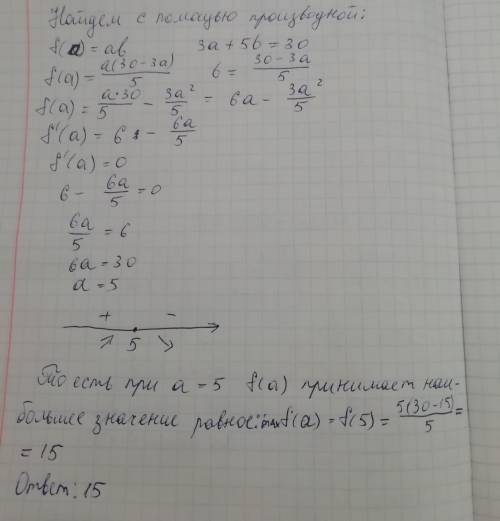 Найдем с помацью производной:
f(a) = ab    3a + 5b = 30
f(a) = a(30-3a)/5    b = 30-3a/5
f(a) = a·30/5 - 3a²/5 = 6a - 3a²/5
f'(a) = 6 - 6a/5
f'(a) = 0
6 - 6a/5 = 0
6a/5 = 6
6a = 30
a = 5
+ -
↗ 5 ↘
То есть при a = 5 f(a) принимает наи-
большее значение равное: max f(a) = f(5) = 5(30-15)/5 =
= 15
Ответ: 15